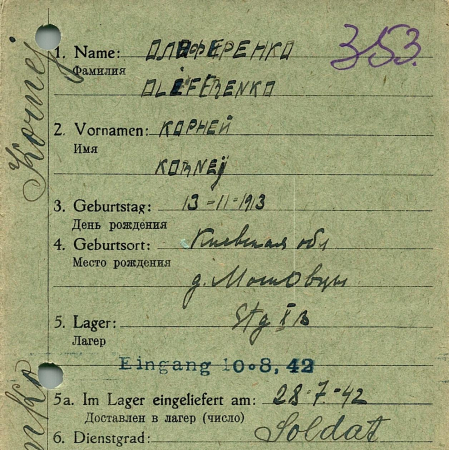 353.
1. Name: ОЛЕФЕРЕНКО
Фамилия
OLEFERENKO
2. Vornamen: КОРНЕЙ
Имя
KORNEJ
3. Geburtstag: 13-11-1913
День рождения
4. Geburtsort: Киевская обл
Место рождения
д.
5. Lager: Stlg
Лагер
Eingang 10.8.42
5a. Im Lager eingeliefert am: 28-7-42
Доставлен в лагер (число)
6. Dienstgrad: Soldat
Kornej
nko